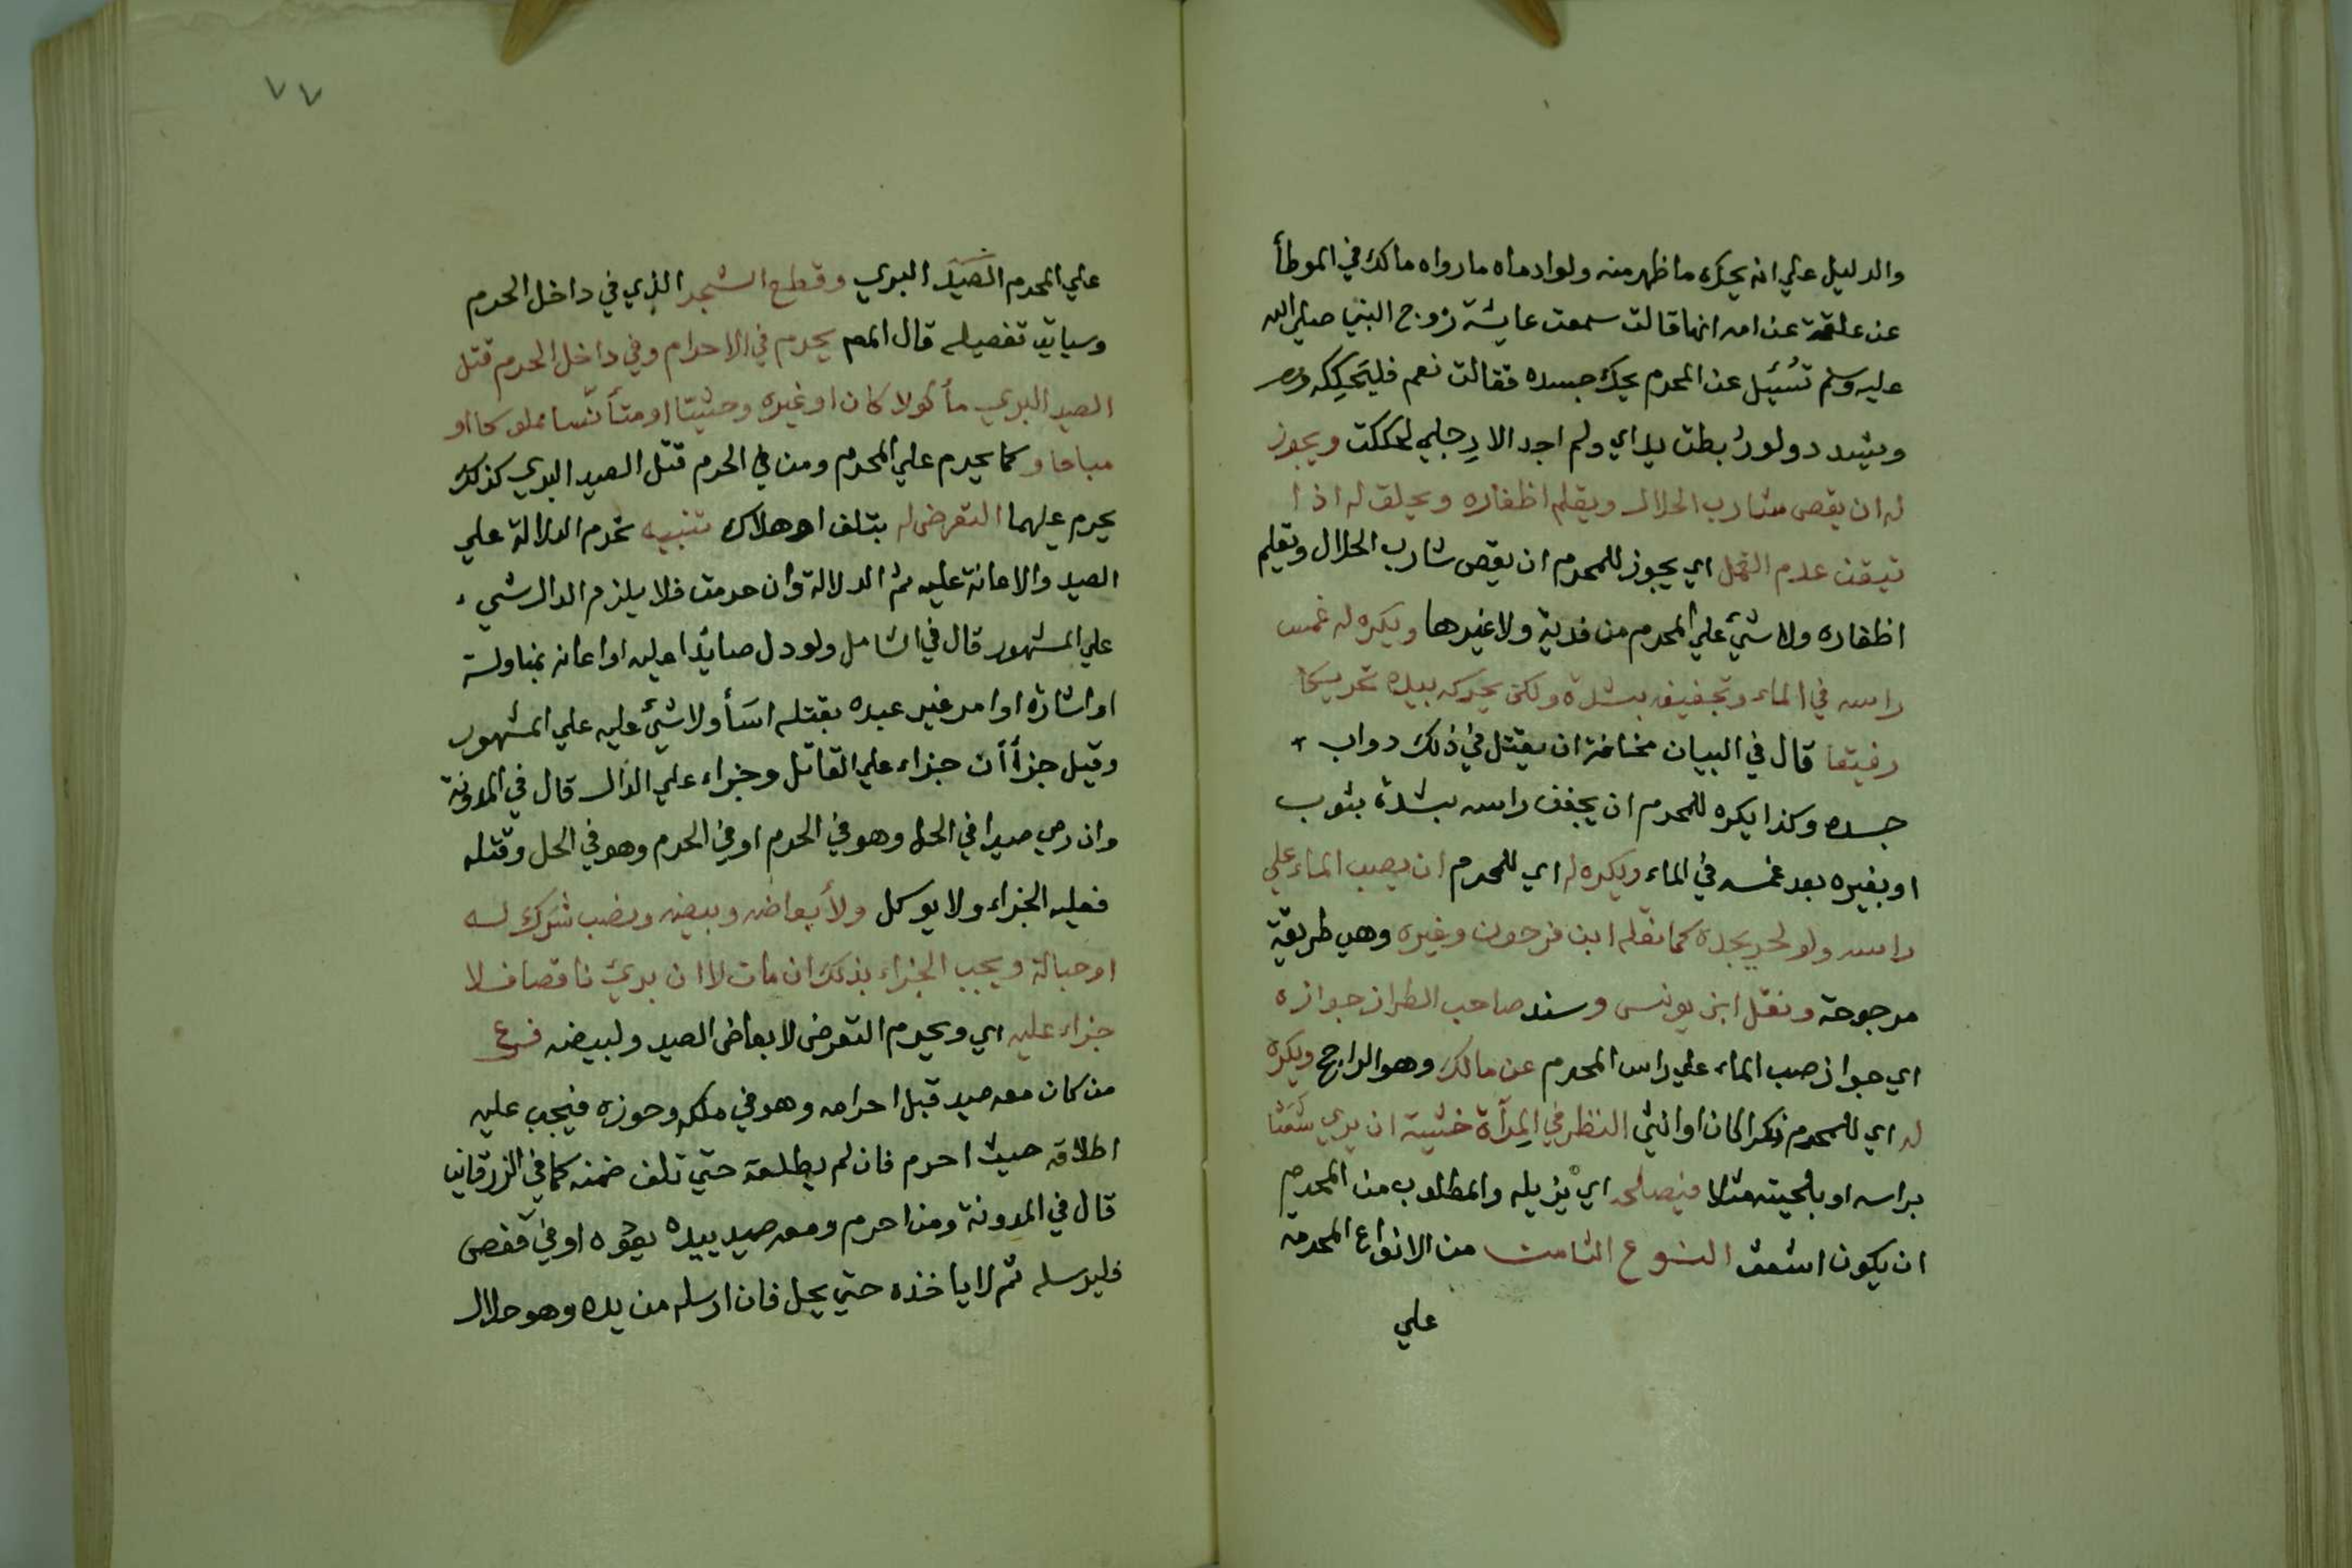 والدليل علي انه يحك ما ظهر منه ولو ادماه ما رواه مالك في الموطأ
عن علقمة عن امه انها قالت سمعت عايشة زوج النبي صلي الله
عليه وسلم تسُئيل عن المحرم يحك جسده فقالت نعم فليحككه
وليشدد ولو ربطت يداي ولم اجد الا رجلي لحككت ويجوز
له ان يقص شارب الحلال ويقلم اظفاره ويحلق له اذا
تيقن عدم القمل اي يجوز للمحرم ان يقص شارب الحلال وتقليم
اظفاره ولا شيء علي المحرم من فدية ولا غيرها ويكره له غمس
راسه في الماء وتجفيفه بشدة ولكن يحركه بيده تحريكا
رفيقا قال في البيان مخافة ان يقتل في ذلك دواب
جسده وكذا يكره للمحرم ان يجفف راسه بشدة بثوب
او بغيره بعد غمسه في الماء ويكره له اي للمحرم ان يصب الماء علي
راسه ولو لحر يجده كما نقله ابن فرحون وغيره وهي طريقة
مرجوحة ونقل ابن يونس وسند صاحب الطراز جوازه
اي جواز صب الماء علي راس المحرم عن مالك وهو الراجح ويكره
له اي للمحرم ذكرا كان او انثي النظر في المِرآة خشية ان يري شَعَثا
براسه او بلحيته مثلا فيصلحه اي يزيله والمطلوب من المحرم
ان يكون اشعث النوع الثامن من الانواع المحرمة
علي
٧٧
علي المحرم الصَيَد البري وقطع الشجر الذي في داخل الحرم
وسياتي تفصيله قال المص يحرم في الاحرام وفي داخل الحرم قتل
الصيد البري مأكولا كان او غيره وحشيا او متأنسا مملوكا او
مباحا وكما يحرم علي المحرم ومن في الحرم قتل الصيد البري كذلك
يحرم عليهما التعرض له بتلف او هلاك تنبيه تحرم الدلالة علي
الصيد والاعانة عليه ثم الدلالة وان حرمت فلا يلزم الدال شيء
علي المشهور قال في الشامل ولو دل صائدا عليه او اعانه بمناولة
او اشارة او امر غير عبده بقتله اسَأ ولا شيء عليه علي المشهور
وقيل جزاأن جزاء علي القاتل وجزاء علي الدال قال في المدونة
وان رمي صيدا في الحل وهو في الحرم او في الحرم وهو في الحل وقتله
فعليه الجزاء ولا يوكل ولأبعاضه وبيضه ونصب شَرَك له
او حبالة ويجب الجزاء بذلك ان مات لا ان بريء ناقصا فلا
جزاء عليه اي ويحرم التعرض لابعاض الصيد ولبيضه فرع
من كان معه صيد قبل احرامه وهو في ملكه وحوزه فيجب عليه
اطلاقه حيث احرم فان لم يطلقه حتي تلف ضمنه كما في الزرقاني
قال في المدونة ومن احرم ومعه صيد بيده يقوده او في قفص
فليرسله ثم لا ياخذه حتي يحل فان ارسله من يده وهو حلال